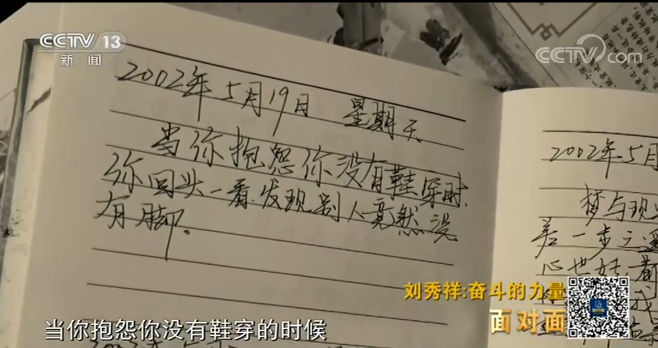 CCTV 13
新闻
CCTV.com
央视网
2002年5月19日 星期天
当你抱怨你没有鞋穿时,
你回头一看,发现别人竟然没
有脚。
2002年5月
梦与现
差一步之遥
心也好
刘秀祥:奋斗的力量
面对面
当你抱怨你没有鞋穿的时候